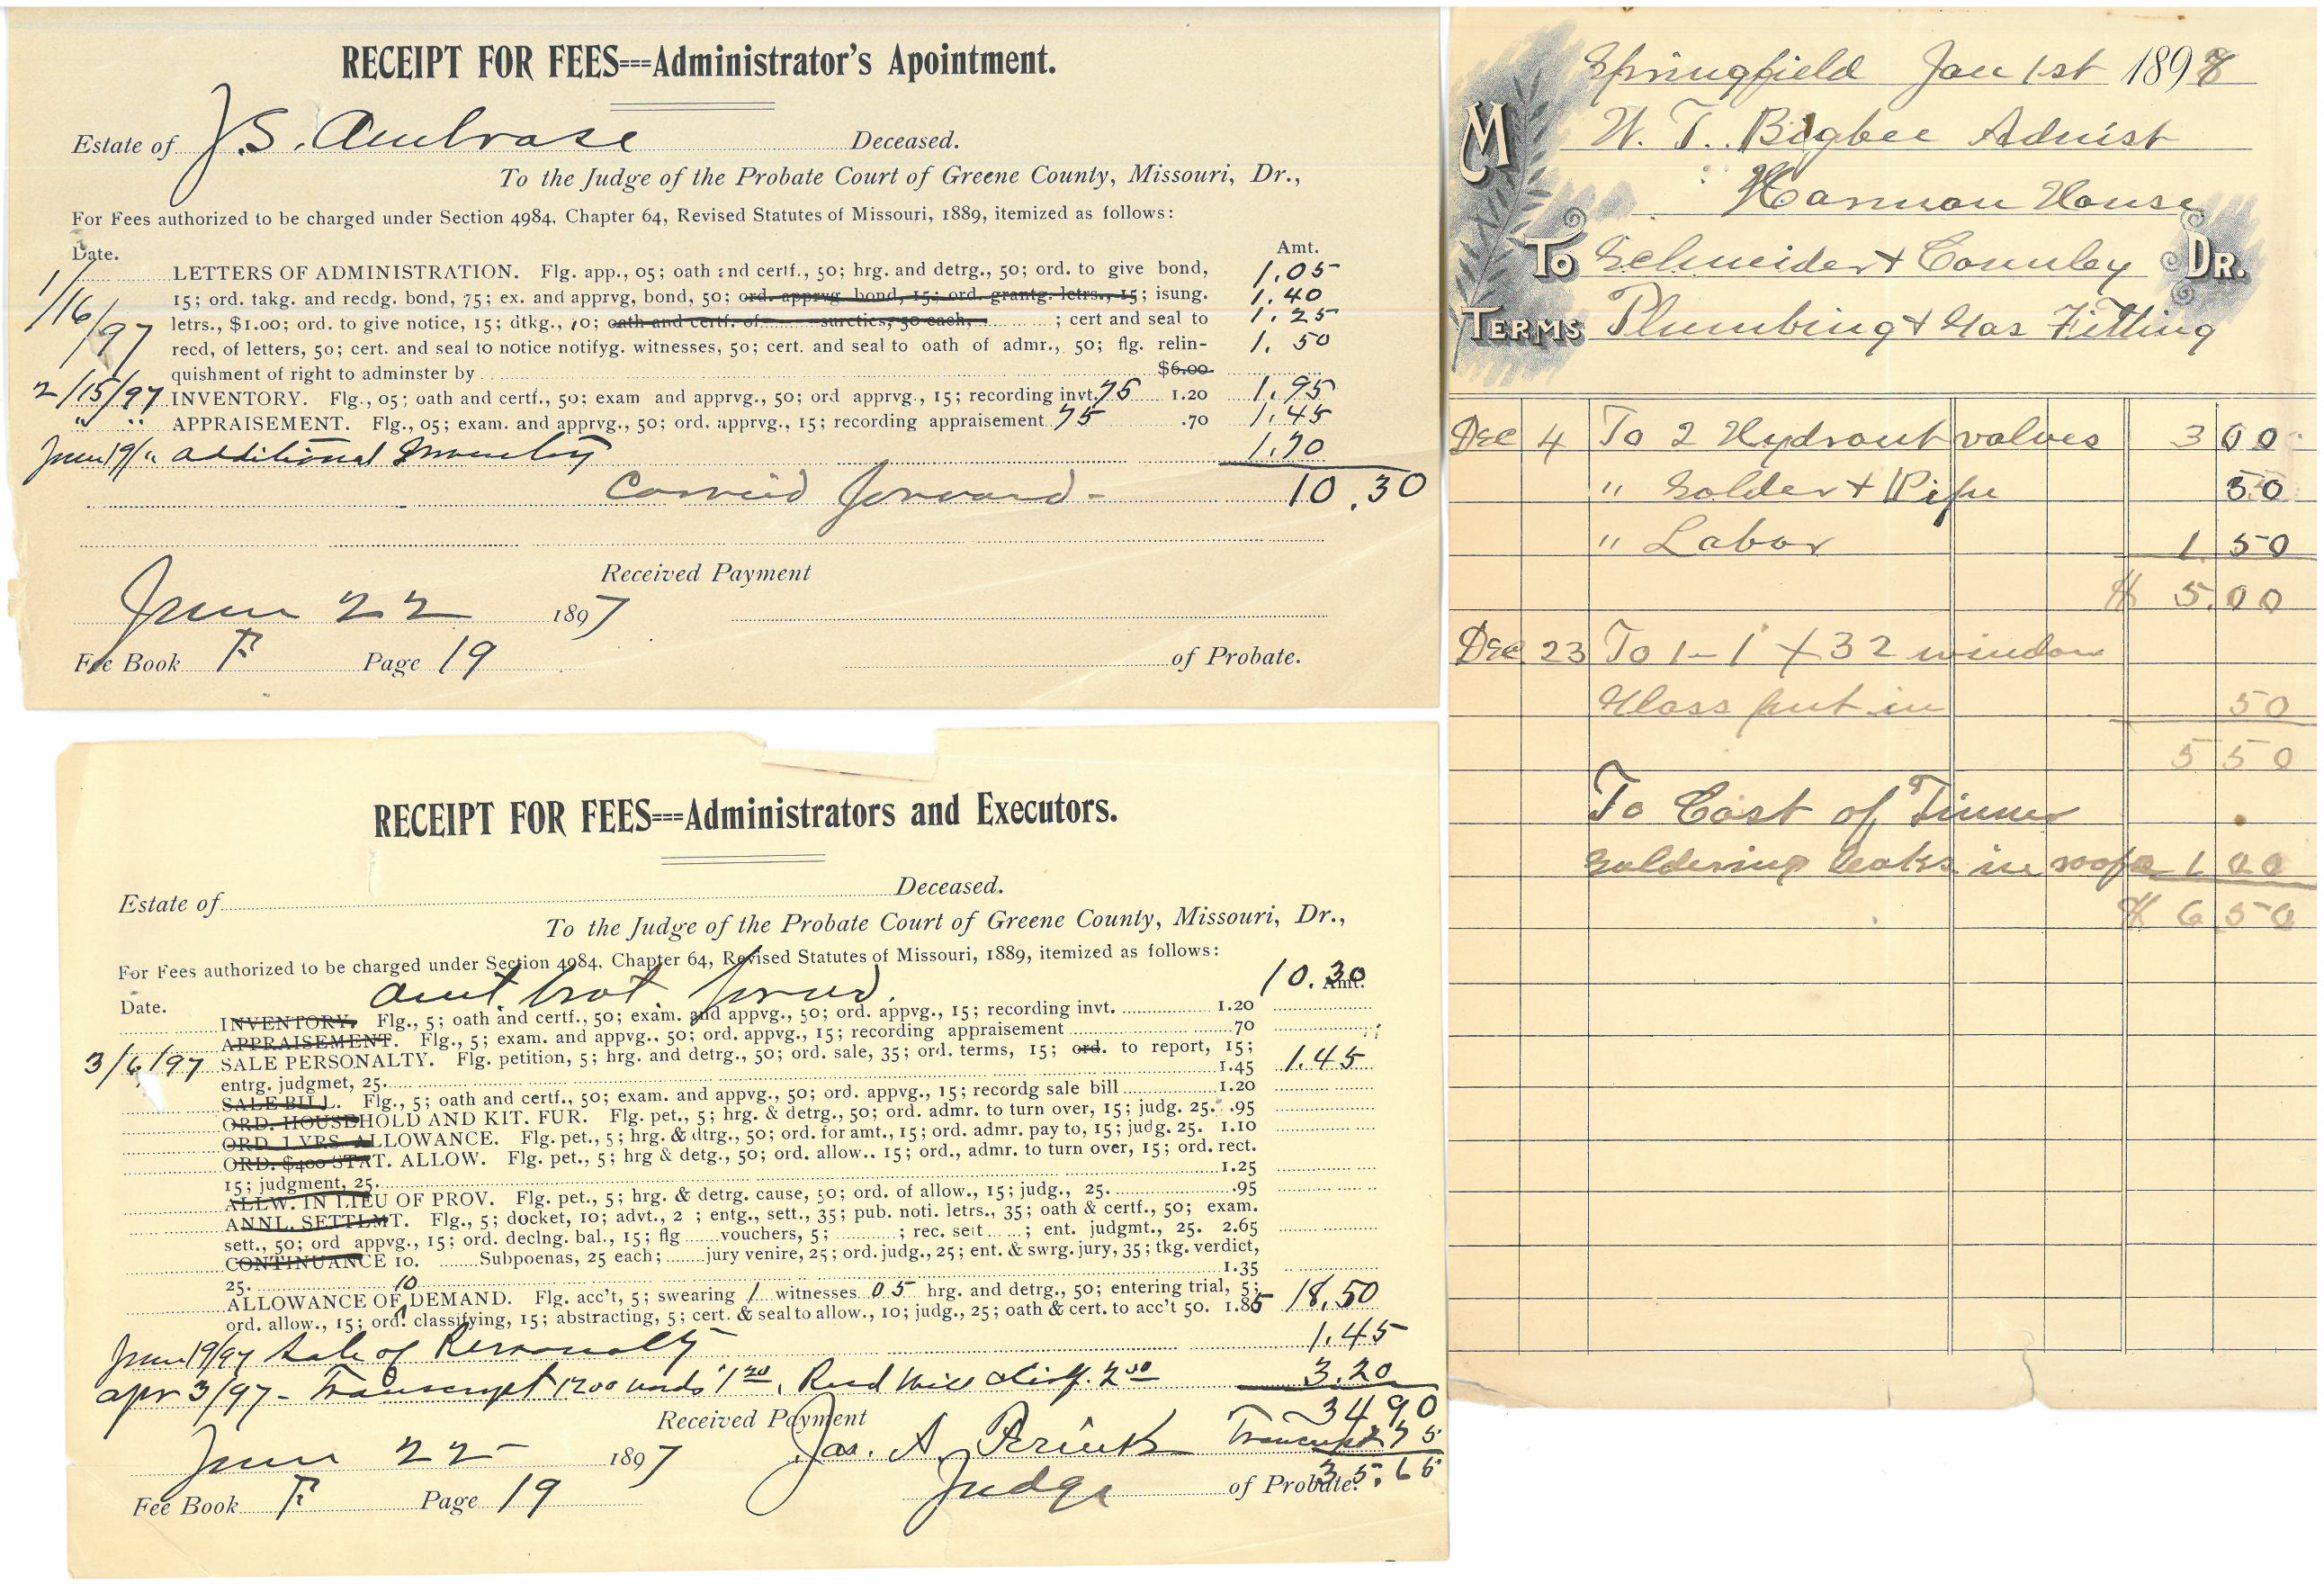 RECEIPT FOR FEES===Administrator's Apointment.
Estate of J.S. Ambrose Deceased.
To the Judge of the Probate Court of Greene County, Missouri, Dr.,
For Fees authorized to be charged under Section 4984, Chapter 64, Revised Statutes of Missouri, 1889, itemized as follows:
Date. Amt.
1/16/97 LETTERS OF ADMINISTRATION. Flg. app., 05; oath and certf., 50; hrg. and detrg., 50; ord. to give bond, 1.05
15; ord. takg. and recdg. bond, 75; ex. and apprvg, bond, 50; ord. apprvg. bond, 15; ord. grantg. letrs., 15; isung. 1.40
letrs., $1.00; ord. to give notice, 15; dtkg., 10; oath and certf. of sureties, 50 each, ; cert and seal to 1.25
recd, of letters, 50; cert. and seal to notice notifyg. witnesses, 50; cert. and seal to oath of admr., 50; flg. relin- 1.50
quishment of right to adminster by $6.00
2/15/97 INVENTORY. Flg., 05; oath and certf., 50; exam and apprvg., 50; ord apprvg., 15; recording invt. 75 1.20 1.95
" " APPRAISEMENT. Flg., 05; exam. and apprvg., 50; ord. apprvg., 15; recording appraisement 75 .70 1.45
June 19/" additional Inventy 1.70
Carried forward - 10.30
Received Payment
June 22 1897
Fee Book F Page 19 of Probate.
RECEIPT FOR FEES===Administrators and Executors.
Estate of Deceased.
To the Judge of the Probate Court of Greene County, Missouri, Dr.,
For Fees authorized to be charged under Section 4984, Chapter 64, Revised Statutes of Missouri, 1889, itemized as follows:
Date. amt. brot. forwd. 10.30 Amt.
INVENTORY. Flg., 5; oath and certf., 50; exam. and appvg., 50; ord. appvg., 15; recording invt. 1.20
APPRAISEMENT. Flg., 5; exam. and appvg.. 50; ord. appvg., 15; recording appraisement 70
3/6/97 SALE PERSONALTY. Flg. petition, 5; hrg. and detrg., 50; ord. sale, 35; ord. terms, 15; ord. to report, 15;
entrg. judgmet, 25. 1.45 1.45
SALE BILL. Flg., 5; oath and certf., 50; exam. and appvg., 50; ord. appvg., 15; recordg sale bill 1.20
ORD. HOUSEHOLD AND KIT. FUR. Flg. pet., 5; hrg. & detrg., 50; ord. admr. to turn over, 15; judg. 25. .95
ORD. 1 YRS. ALLOWANCE. Flg. pet., 5; hrg. & dtrg., 50; ord. for amt., 15; ord. admr. pay to, 15; judg. 25. 1.10
ORD. $400 STAT. ALLOW. Flg. pet., 5; hrg & detg., 50; ord. allow.. 15; ord., admr. to turn over, 15; ord. rect.
15; judgment, 25. 1.25
ALLW. IN LIEU OF PROV. Flg. pet., 5; hrg. & detrg. cause, 50; ord. of allow., 15; judg., 25. .95
ANNL. SETTLMT. Flg., 5; docket, 10; advt., 2 ; entg., sett., 35; pub. noti. letrs., 35; oath & certf., 50; exam.
sett., 50; ord appvg., 15; ord. declng. bal., 15; flg vouchers, 5; ; rec. sett ; ent. judgmt., 25. 2.65
CONTINUANCE 10. Subpoenas, 25 each; jury venire, 25; ord. judg., 25; ent. & swrg. jury, 35; tkg. verdict,
25. 1.35
ALLOWANCE OF 10 DEMAND. Flg. acc't, 5; swearing 1 witnesses 05 hrg. and detrg., 50; entering trial, 5;
ord. allow., 15; ord. classifying, 15; abstracting, 5; cert. & seal to allow., 10; judg., 25; oath & cert. to acc't 50. 1.85 18.50
June 19/97 Sale of Personalty 1.45
apr 3/97 - Transcript 1200 words 1 20, Recd 2 00 3.20
34 90
Received Payment Transcript 75
June 22 1897 Jas. A. 35.65
Judge of Probate.
Fee Book F Page 19
Springfield Jan 1st 1898
M W. T. Bigbee Admist
Harmon House
To Schneider & Connley Dr.
Terms Plumbing & Gas Fitting
Dec 4 To 2 Hydrant valves 3 00
" Solder & Pipe 50
" Labor 1 50
$ 5.00
Dec 23 To 1-1 X 32 window
Glass put in 50
5 50
To Cost of Tinner
Soldering leaks in roof 1 00
$ 6 50